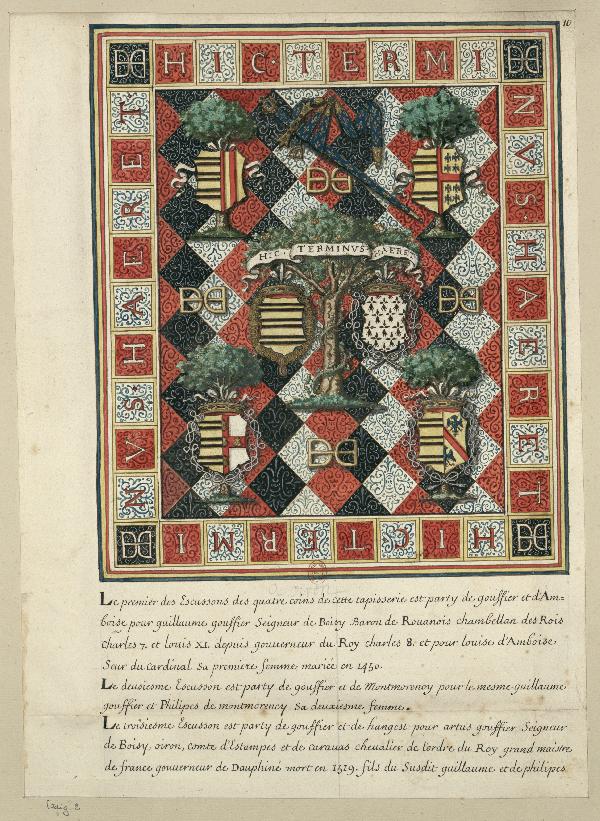 10
HIC·TERMI
NVS·HAERET
HIC TERMI
NVS·HAERET
HIC · TERMINVS HAERE
Le premier des Escussons des quatre coins de cette tapisserie est party de gouffier et d'Am=
boise pour guillaume gouffier Seigneur de Boisy Baron de Rouanois chambellan des Rois
charles 7. et louis XI. depuis gouuerneur du Roy charles 8. et pour louise d'Amboise.
Seur du Cardinal Sa premiere femme mariée en 1450.
Le deusiesme Escusson est party de gouffier et de Montmorency pour le mesme guillaume
gouffier et Philipes de montmorency Sa deuxiesme femme.
Le troisiesme Escusson est party de gouffier et de hangest pour artus gouffier Seigneur
de Boisy, oiron, comte d'Estampes et de carauas cheualier de lordre du Roy grand maistre
de france gouuerneur de Dauphiné mort en 1519. fils du Susdit guillaume et de philipes